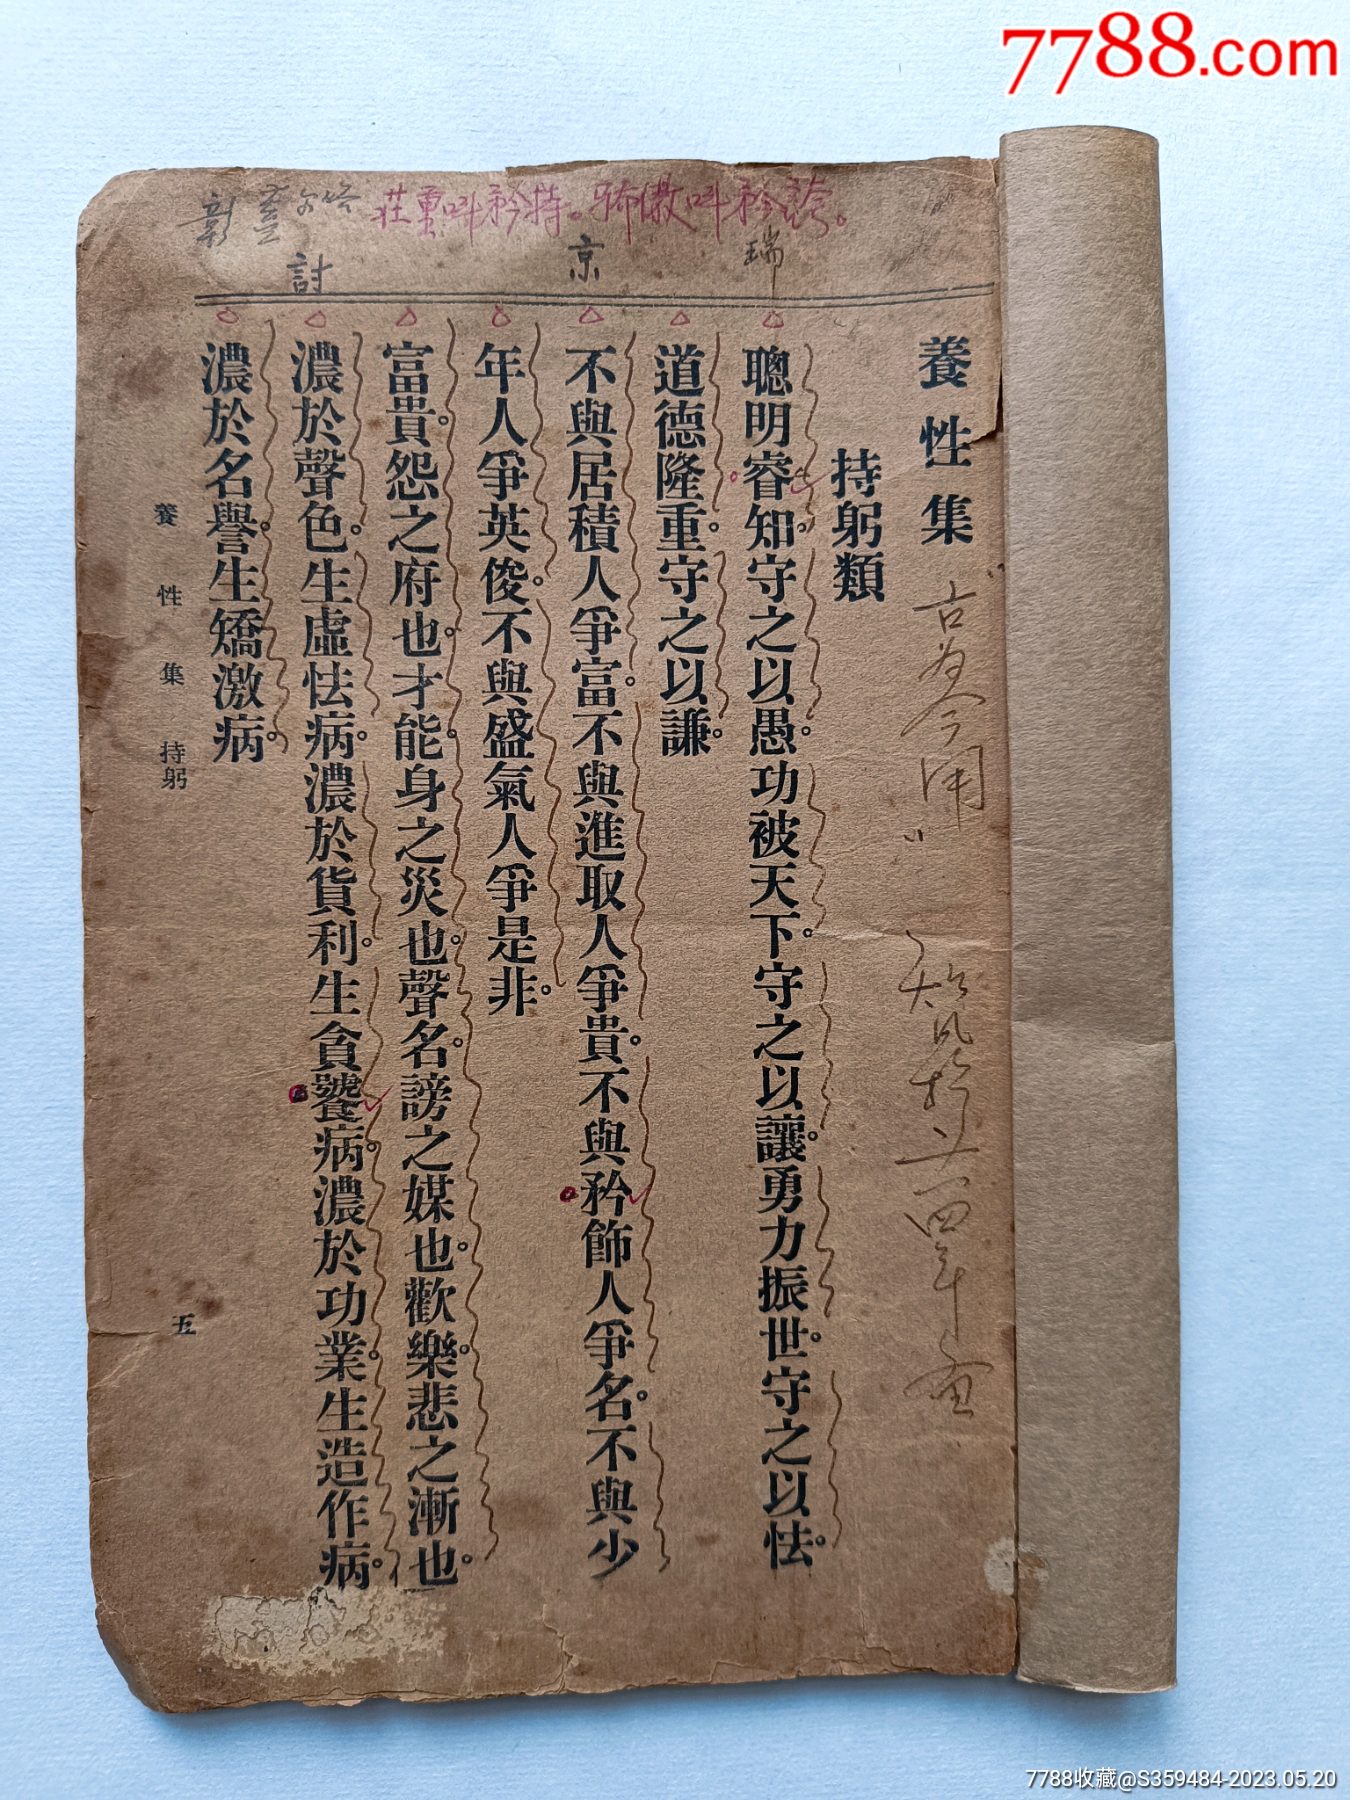 7788.com
莊重叫矜持。驕傲叫矜誇。
瑞
京
討
養性集
古为今用
持躬類
聰明睿知。守之以愚。功被天下。守之以讓。勇力振世。守之以怯。
道德隆重。守之以謙。
不與居積人爭富。不與進取人爭貴。不與矜飾人爭名。不與少
年人爭英俊。不與盛氣人爭是非。
富貴。怨之府也。才能。身之災也。聲名。謗之媒也。歡樂。悲之漸也。
濃於聲色。生虛怯病。濃於貨利。生貪饕病。濃於功業。生造作病。
濃於名譽。生矯激病。
養性集 持躬
五
7788收藏@S359484-2023.05.20